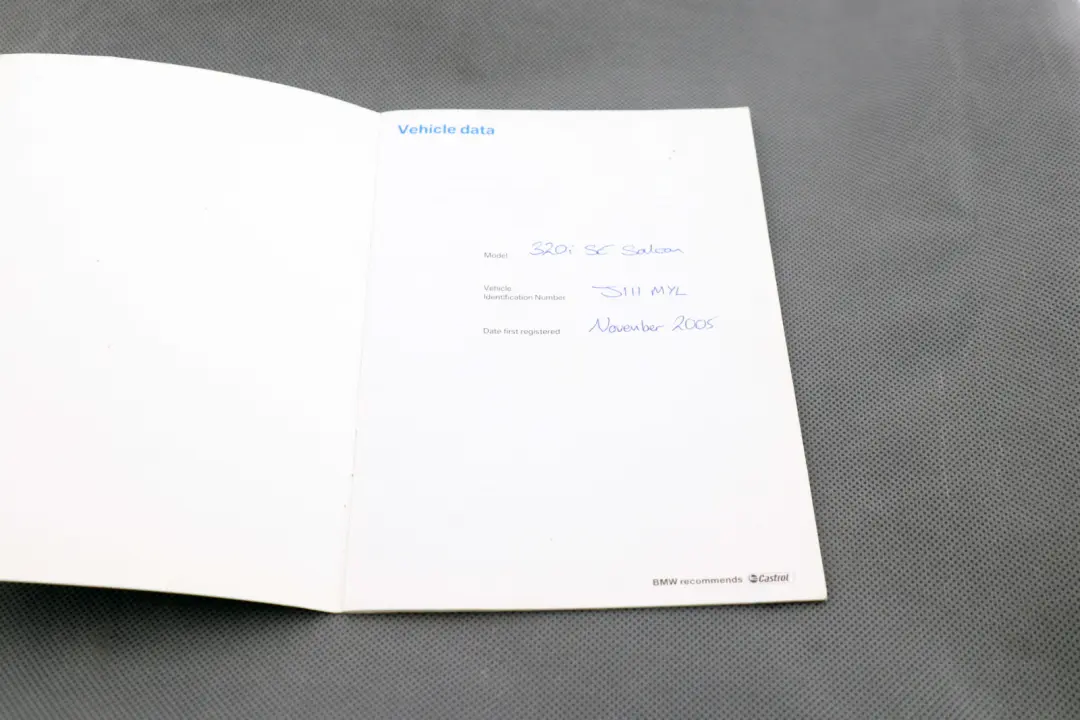 Vehicle data
Model 320i SE Saloon
Vehicle
Identification Number JS111 MYL
Date first registered November 2005
BMW recommends Castrol